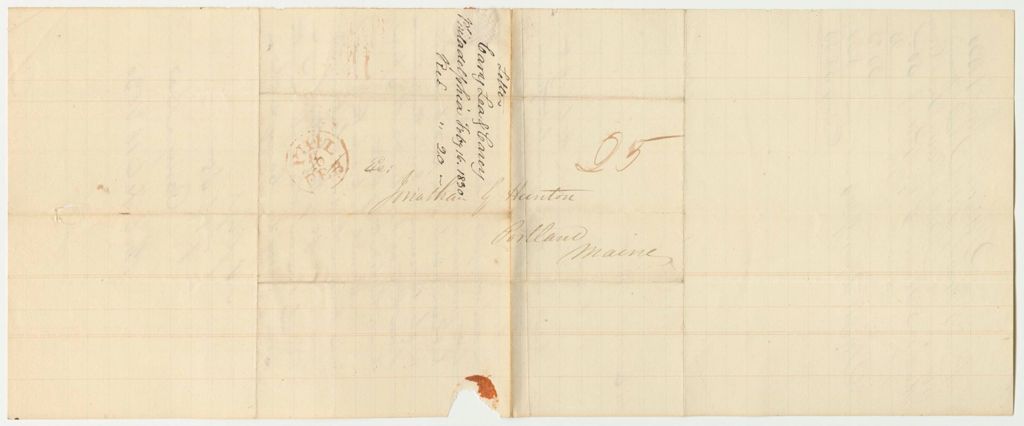 Letter
Carey Lea & Carey
Philadelphia Feby 16. 1830
Recd " 20 "
PHIL
FEB
25
Jonathan G Hunton
Portland
Maine